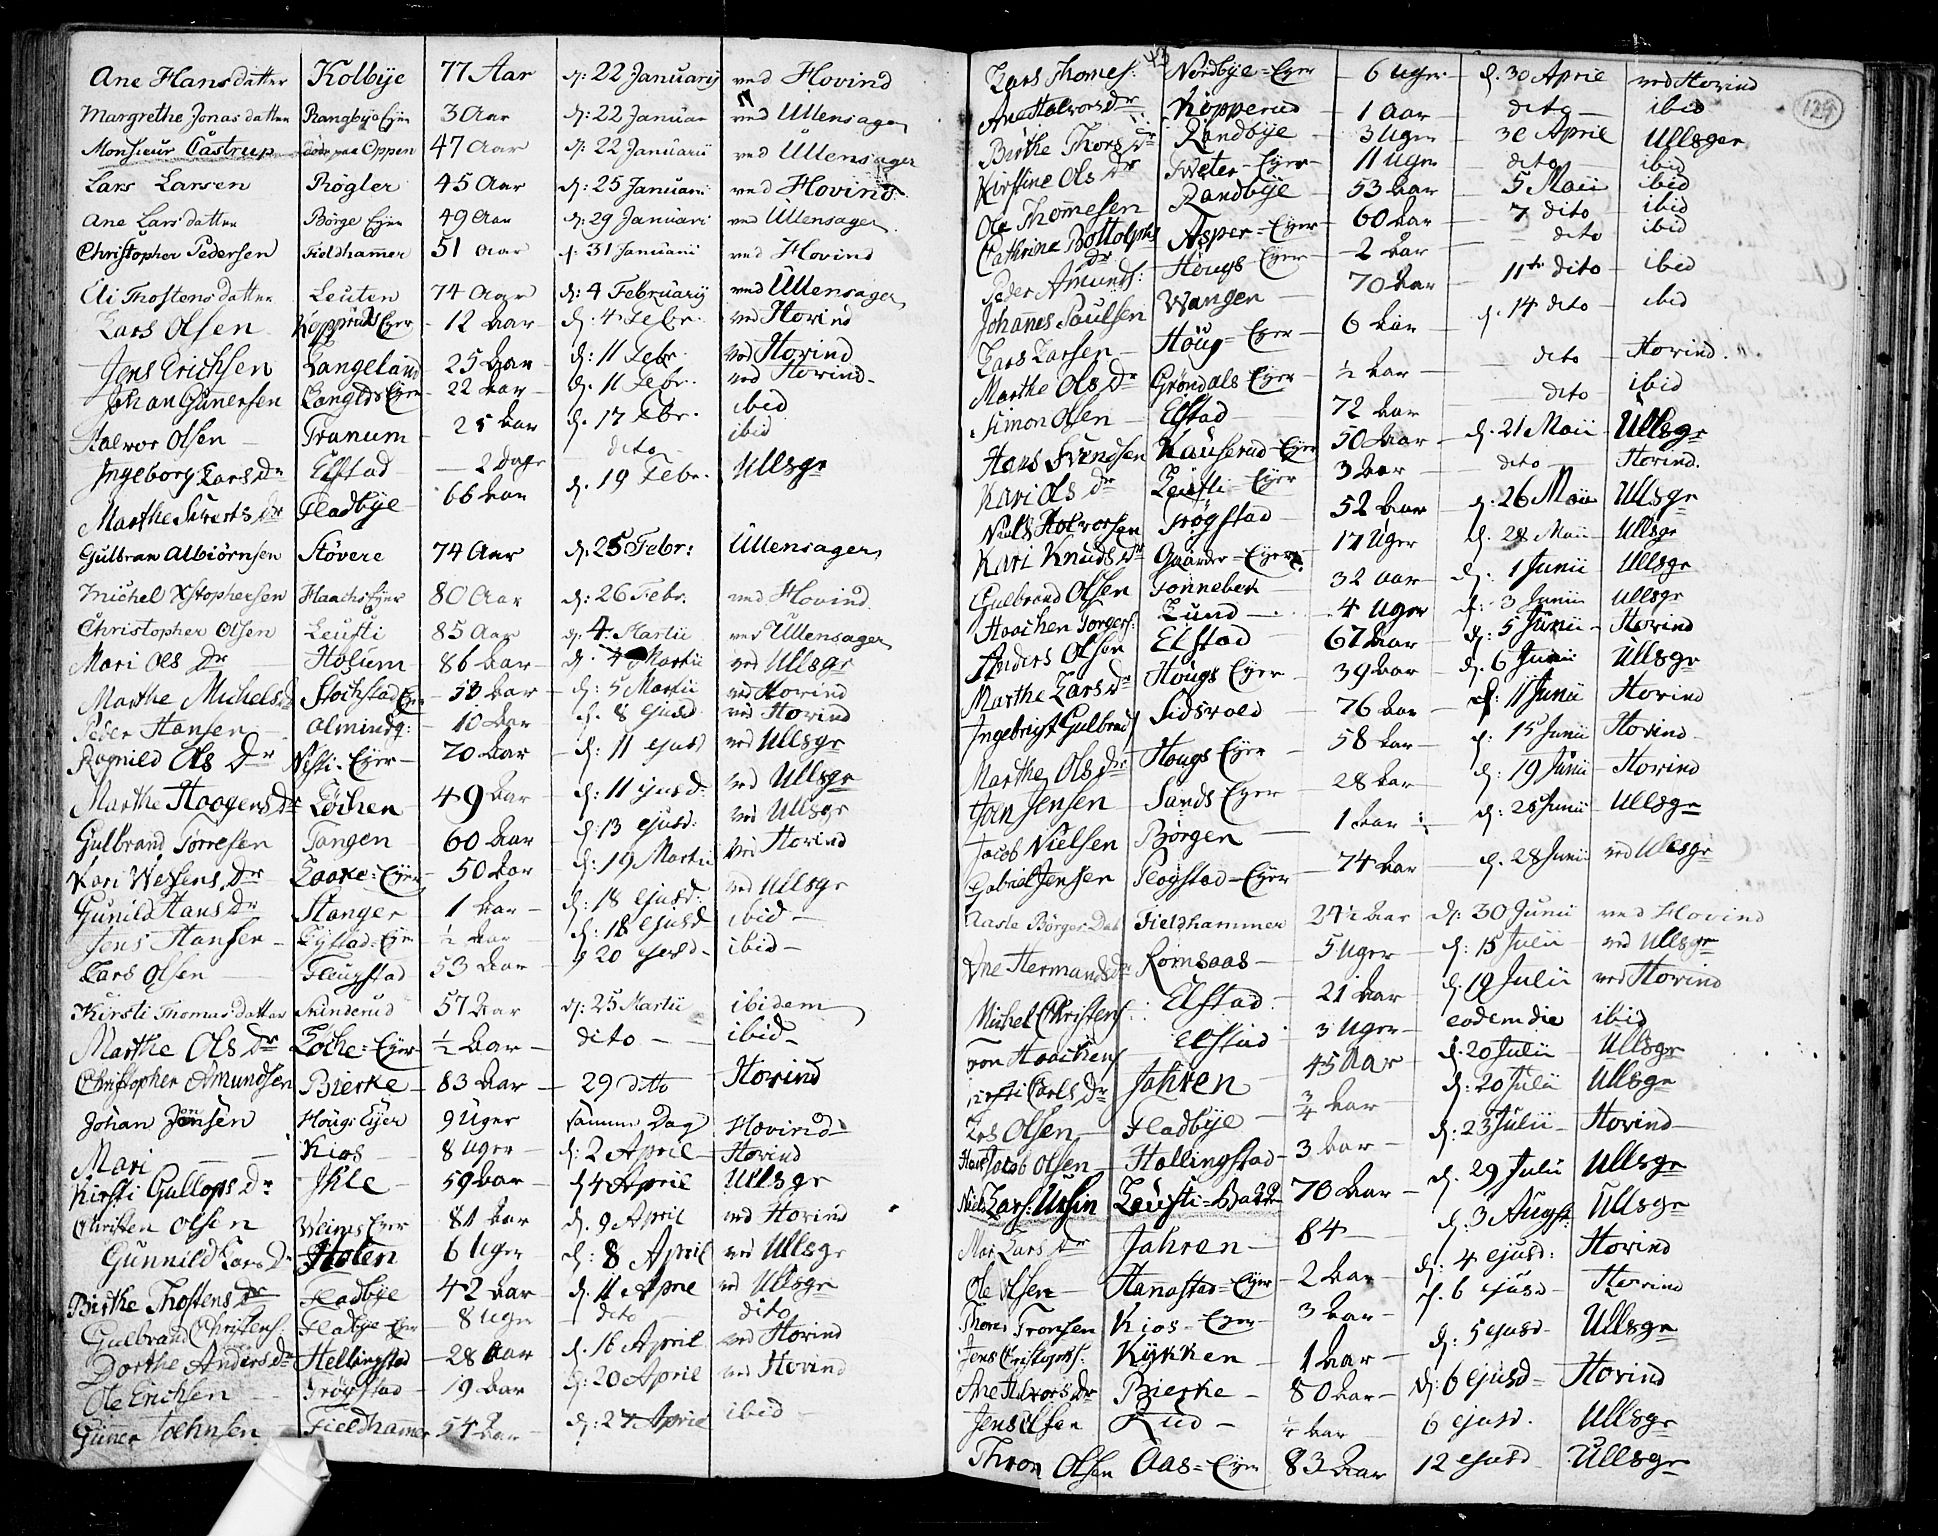 Ane Hansdatter Kolbye 77 Aar d: 22 Januarij ved Hovind
Margrethe Jonasdatter Rangbye Ejer 3 Aar d: 22 Januar ved Ullensager
Monsieur Castrup døde paa Oppen 47 Aar d: 22 Januarii ved Ullensager
Lars Larsen Røgler 45 Aar d: 25 Januarii ved Hovind
Ane Larsdatter Børge Ejer 49 Aar d: 29 Januari ved Ullensager
Christopher Pedersen Fieldhammer 51 Aar d: 31 Januarii ved Hovind
Eli Thostensdatter Leuten 74 Aar d: 4 Februarij ved Ullensager
Lars Olsen Kopperuds Ejer 12 Aar d. 4 Febr. ved Hovind
Jens Erichsen Langeland 25 Aar d: 11 Febr. ved Hovind
Johan Gunersen Langlds Ejer 22 Aar d. 11 Febr. ved Hovind
Halvor Olsen Tranum 25 Aar d. 17 Febr. ibid
Ingeborg Lars Dr Elstad 2 Dage dito ibid
Marthe Siverts Dr Fladbye 66 Aar d. 19 Febr. Ullsgr
Gulbran Albiørnsen Støvere 74 Aar d. 25 Febr: Ullensager
Michel Xstophersen Haachs Ejer 80 Aar d: 26 Febr. ved Hovind
Christopher Olsen Leusti 85 Aar d. 4 Martii ved Ullensager
Mari Ols Dr Holum 86 Aar d. 4 Martii ved Ullsgr
Marthe Michels Stochstad Ejer 50 Aar d: 5 Martii ved Hovind
Peder Hansen Almindg: 10 Aar d. 8 ejusd ved Hovind
Ragnild Ols Dr Nesti-Ejer 70 Aar d. 11 ejusd ved Ullsgr
Marthe Haagens Dr Løchen 49 Aar d: 11 ejusd: ved Ullsgr
Gulbrand Torresen Tangen 60 Aar d: 13 ejusd: ved Ullsgr
Kari Dr Laake-Ejer 50 Aar d: 19 Martii ved Hovind
Gunild Hans Dr Stanger 1 Aar d: 18 ejusd: ved Ullsgr
Jens Hansen Ejer ½ Aar d: 18 ejusd ibid
Lars Olsen Flougstad 53 Aar d 20 ejusd ibid
Kirsti Thomasdatter Sunderud 57 Aar d: 25 Martii ibidem
Marthe Ols Dr Løche-Ejer ½ Aar dito ibid
Christopher Amundsen Bierke 83 Aar 29 ditto Hovind
Johan Jensen Hougs Ejer 9 Uger samme Dag Hovind
Mari Kios 8 Uger d: 2 April Hovind
Kirsti Gullops Dr Ihle 59 Aar d 4 April Ullsgr
Christen Olsen Ejer 81 Aar d. 9 April ved Hovind
Gunnild Lars Dr Holen 6 Uger d: 8 April ved Ullsgr
Birthe Thostens Dr Fladbye 42 Aar d. 11 April ved Ullsgr
Gulbrand Christens. Fladbye Ejer 8 Uger dito dito
Dorthe Anders Dr Hellingstad 28 Aar d. 16 April ved Hovind
Ole Erichsen Trøgstad 19 Aar d: 20 April ved Hovind
Guner Joehnsen Fieldhammer 54 Aar d: 27 April ibid
129
Lars Thomes: Nordbye-Ejer 6 Uger d. 30 April ved Hovind
Ane Halvors Dr Kopperud 1 Aar dito ibid
Birthe Thors Dr Randbye 3 Uger 30 April Ullsger
Kirstine Ols Dr Tveter-Ejer 11 Uger dito ibid
Ole Thomesen Randbye 53 Aar 5 Maii ibid
Cathrine Bottolphs Dr Asper-Ejer 60 Aar 7 dito ibid
Peder Amunds: Hougs Ejer 2 Aar dito ibid
Johannes Poulsen Wangen 70 Aar 11te dito ibid
Lars Larsen Houg-Ejer 6 Aar d. 14 dito ibid
Marthe Ols Dr Grøndals Ejer ½ Aar dito Hovind.
Simon Olsen Elstad 72 Aar dito ibid
Hans Svendsen Kauserud-Ejer 50 Aar d. 21 Maii Ullsgr
Kari Ols Dr Leusti-Ejer 3 Aar dito Hovind.
Niels Halvorsen Trøgstad 52 Aar d. 26 Maii Ullsgr
Kari Knuds Dr Gaarder-Ejer 17 Uger d. 28 Maii Ullsgr
Gulbrand Olsen Tonneber 32 Aar d: 1 Junii Ullsgr
Haachen Torgers. Lund 4 Uger d: 3 Junii Ullsgr
Anders Olsen Elstad 67 Aar d: 5 Junii Hovind
Marthe Lars Dr Hougs Ejer 39 Aar d. 6 Junii Ullsgr
Ingebrigt Gulbrans Sidsvold 76 Aar d: 11 Junii Hovind
Marthe Ols Dr Hougs Ejer 58 Aar d: 15 Junii Hovind
Joen Jensen Sands Ejer 28 Aar d: 19 Junii Hovind
Jacob Nielsen Børgen 1 Aar d: 25 Junii Ullsgr
Gabriel Jensen Flogstad-Ejer 74 Aar d. 28 Junii ved Ullsgr
Aaste Børger Dat Fieldhammer 24½ Aar d: 30 Junii ved Hovind
Ane Hermands Dr Romsaas 5 Uger d: 15 Julii ved Ullsgr
Michel Christens Elstad 21 Aar d. 19 Julii ved Hovind
Haachens Elstad 3 Uger eodem die ibid
Carls Dr Jahren 45 Aar d. 20 Julii Ullsgr
Olsen Fladbye ¾ Aar d: 20 Julii Ullsgr
Jacob Olsen Hallingstad 3 Aar d: 23 Julii Hovind
Niels Lars: Ursin Leusti-Bakke 70 Aar d. 29 Julii Ullsgr
Mar Lars Dr Jahren 84 d. 3 Augst. Ullsgr
Ole Olsen Hanastad-Ejer 2 Aar d. 4 ejusd: Hovind
Thores Tronsen Kios-Ejer 3 Aar d. 6 ejusd Hovind
Jens Christophs: Kykken 1 Aar d: 5 ejusd Ullsgr
Ane Halvors Dr Bierke 80 Aar d: 6 ejusd Hovind
Jens Olsen Rud Aar 6 ejusd. Ullsgr
Thron Olsen Aas-Ejer 83 Aar 12 ejusd Ullsgr